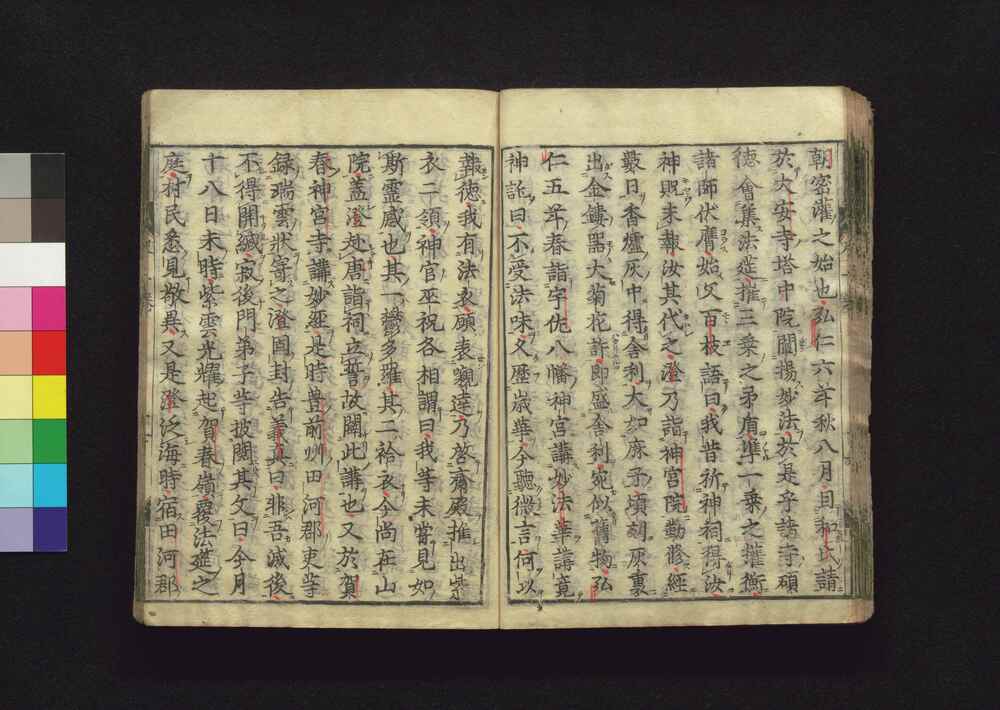 朝密灌之始也弘仁六年秋八月因和氏請
於大安寺塔中院闡揚妙法於是乎諸寺碩
德會集法莚推三乗之矛盾準一乗之權衡
諸師伏膺始父百枝語曰我昔祈神祠得汝
神既未報汝其代之澄乃詣神宮院勤修經
數日香爐灰中得舎利大如麻子頃刻灰裏
出金鏤器大菊花許即盛舎利宛似舊物弘
仁五年春詣宇佐八幡神宮講妙法華講竟
神託曰不受法味久歴歳華今聽微言何以
報德我有法衣願表嚫達乃啓齋殿推出紫
衣二領神官巫祝各相謂曰我等未嘗見如
斯靈感也其一欝多羅其二袷衣今尚在山
院蓋澄赴唐詣祠立誓故開此講也又於賀
春神宮寺講妙經是時豊前州田河郡吏等
錄瑞雲狀寄之澄固封告義眞曰非吾滅後
不得開緘寂後門弟子等披閲其文曰今月
十八日未時紫雲光耀起賀春嶺覆法莚之
庭村民悉見敬異又是澄泛海時宿田河郡